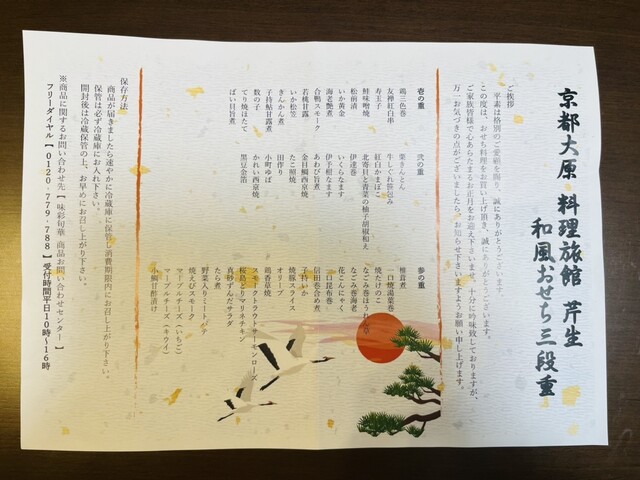 京都大原 料理旅館 芹生
和風おせち三段重
ご挨拶
平素は格別のご愛顧を賜り、誠にありがとうございます。
この度は、おせち料理をお買い上げ頂き、誠にありがとうございます。
ご家族皆様で心あらたまるお正月をお迎え下さいませ。十分に吟味致しておりますが、
万一お気づきの点がございましたら、お知らせ下さいますようお願い申し上げます。
壱の重
鶏三色巻
友禅紅白串
寿玉子
鮮味噌焼
松前漬
いか黄金
海老艶煮
合鴨スモーク
若桃甘露
いか松笠
きんかん煮
子持鮎甘露煮
数の子
てり焼ほたて
ばい貝旨煮
弐の重
栗きんとん
牛しぐれ笹包み
紅白かまぼこ
北寄貝と青菜の柚子胡椒和え
伊達巻
いくらなます
伊予柑なます
あわび旨煮
金目鯛西京焼
たこ照焼
田作り
小町ゆば
かれい西京焼
黒豆金箔
参の重
椎茸煮
一口焼湯葉巻
焼たけのこ
なごみ巻ほうれん草
なごみ巻海老
花こんにゃく
一口昆布巻
信田巻含め煮
子持いか
焼豚スライス
オリーブ
鶏香草焼
スモークトラウトサーモンローズ
桜島どりマリネチキン
真砂ずんだサラダ
たら煮
野菜入りミートパテ
焼えびスモーク
マーブルチーズ(いちご)
マーブルチーズ(キウイ)
小鯛甘酢漬け
保存方法
商品が届きましたら速やかに冷蔵庫に保管し消費期限内にお召し上がり下さい。
保管は必ず冷蔵庫にお入れ下さい。
開封後は冷蔵保管の上、お早めにお召し上がり下さい。
※商品に関するお問い合わせ先【味彩旬華 商品お問い合わせセンター】
フリーダイヤル【0120-779-788】受付時間平日10時〜16時